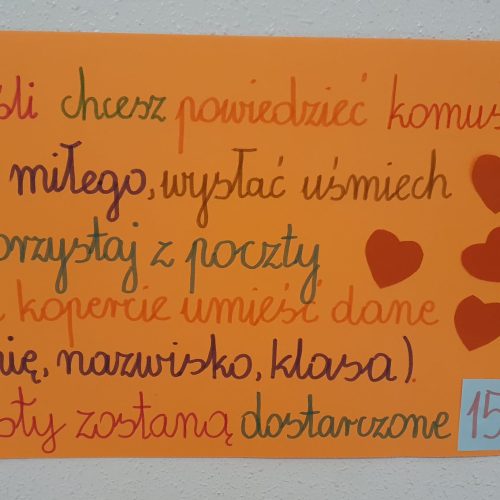 śli chcesz powiedzieć komuś
miłego, wysłać uśmiech
orzystaj z poczty
kopercie umieść dane
nię, nazwisko, klasa).
sty zostaną dostarczone 15